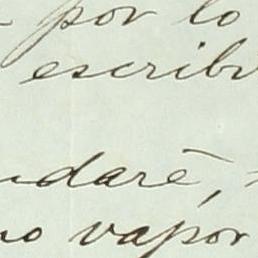 por lo
escrib
daré,
vapor